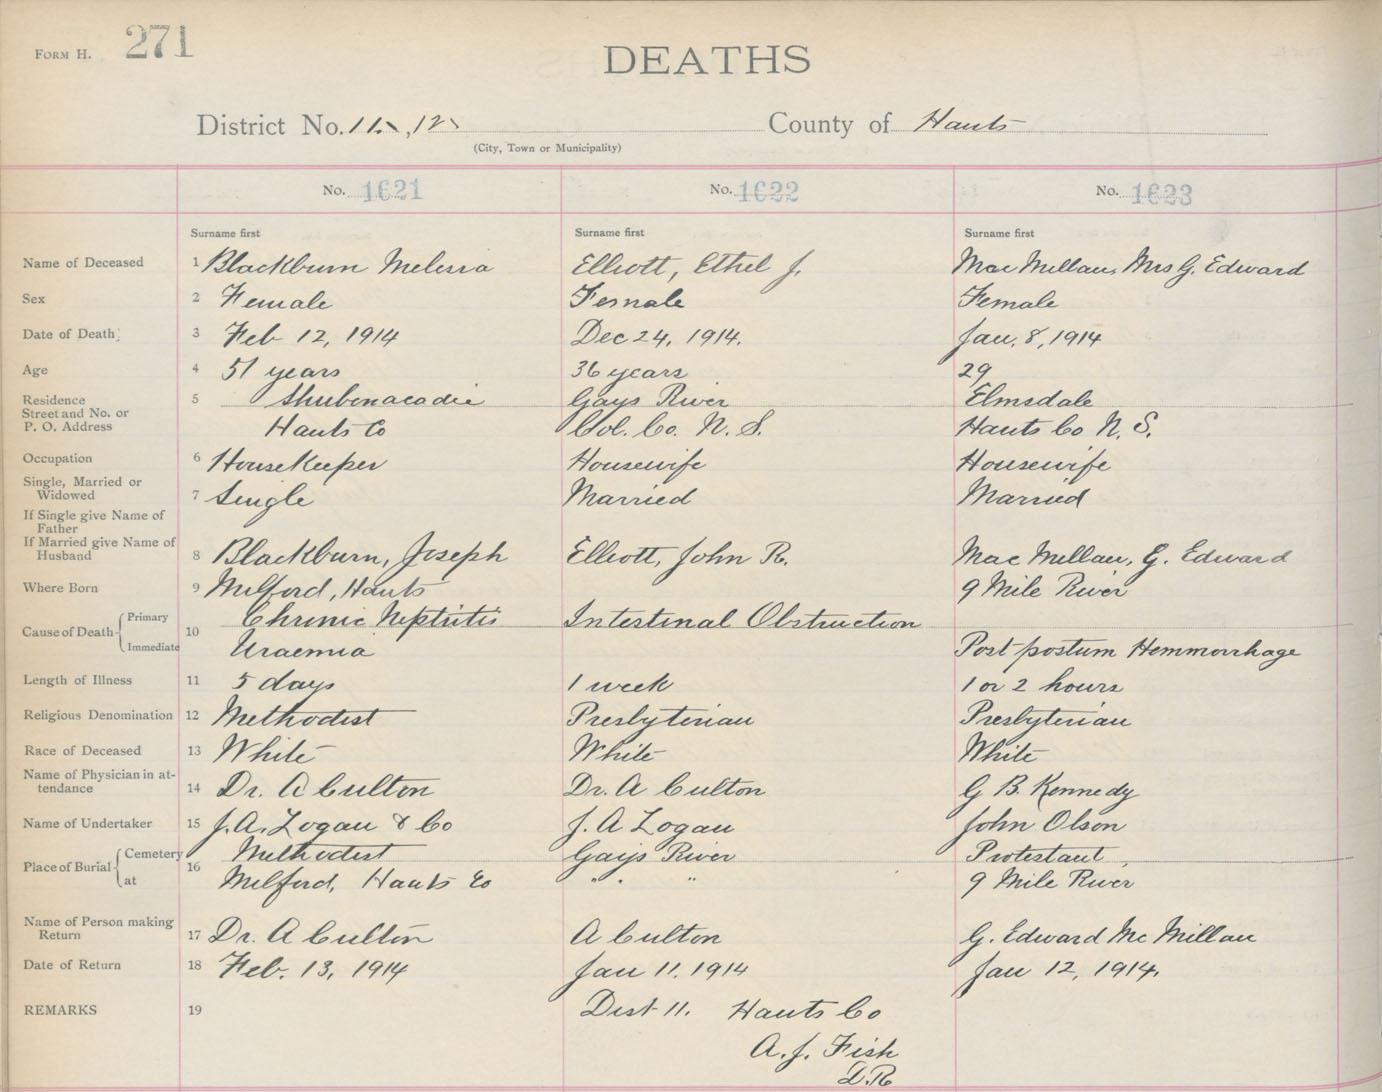 FORM H. 271
DEATHS
District No. 11, 12 County of Hants
(City, Town or Municipality)
No. 1621 No. 1622 No. 1623
Surname first Surname first Surname first
Name of Deceased 1 Blackburn Melissa Elliott, Ethel J. MacMillan, Mrs G. Edward
Sex 2 Female Female Female
Date of Death 3 Feb 12, 1914 Dec 24, 1914. Jan, 8, 1914
Age 4 51 years 36 years 29
Residence 5 Shubenacadie Gays River Elmsdale
Street and No. or
P. O. Address Hants Co Col. Co. N. S. Hants Co N. S.
Occupation 6 HouseKeeper Housewife Housewife
Single, Married or
Widowed 7 Single Married Married
If Single give Name of
Father
If Married give Name of
Husband 8 Blackburn, Joseph Elliott, John R. MacMillan, G. Edward
Where Born 9 Milford, Hants 9 Mile River
Cause of Death Primary 10 Chronic Neptritis Intestinal Obstruction
Immediate Uraemia Post postum Hemmorrhage
Length of Illness 11 5 days 1 week 1 or 2 hours
Religious Denomination 12 Methodist Presbyterian Presbyterian
Race of Deceased 13 White White White
Name of Physician in at-
tendance 14 Dr. A Culton Dr. A Culton G B. Kennedy
Name of Undertaker 15 J. A. Logan & Co J. A Logan John Olson
Place of Burial Cemetery 16 Methodist Gays River Protestant
at Milford, Hants Co " " 9 Mile River
Name of Person making
Return 17 Dr. A Culton A Culton G. Edward McMillan
Date of Return 18 Feb. 13, 1914 Jan 11. 1914 Jan 12, 1914.
REMARKS 19 Dist 11. Hants Co
A. J. Fish
D.R